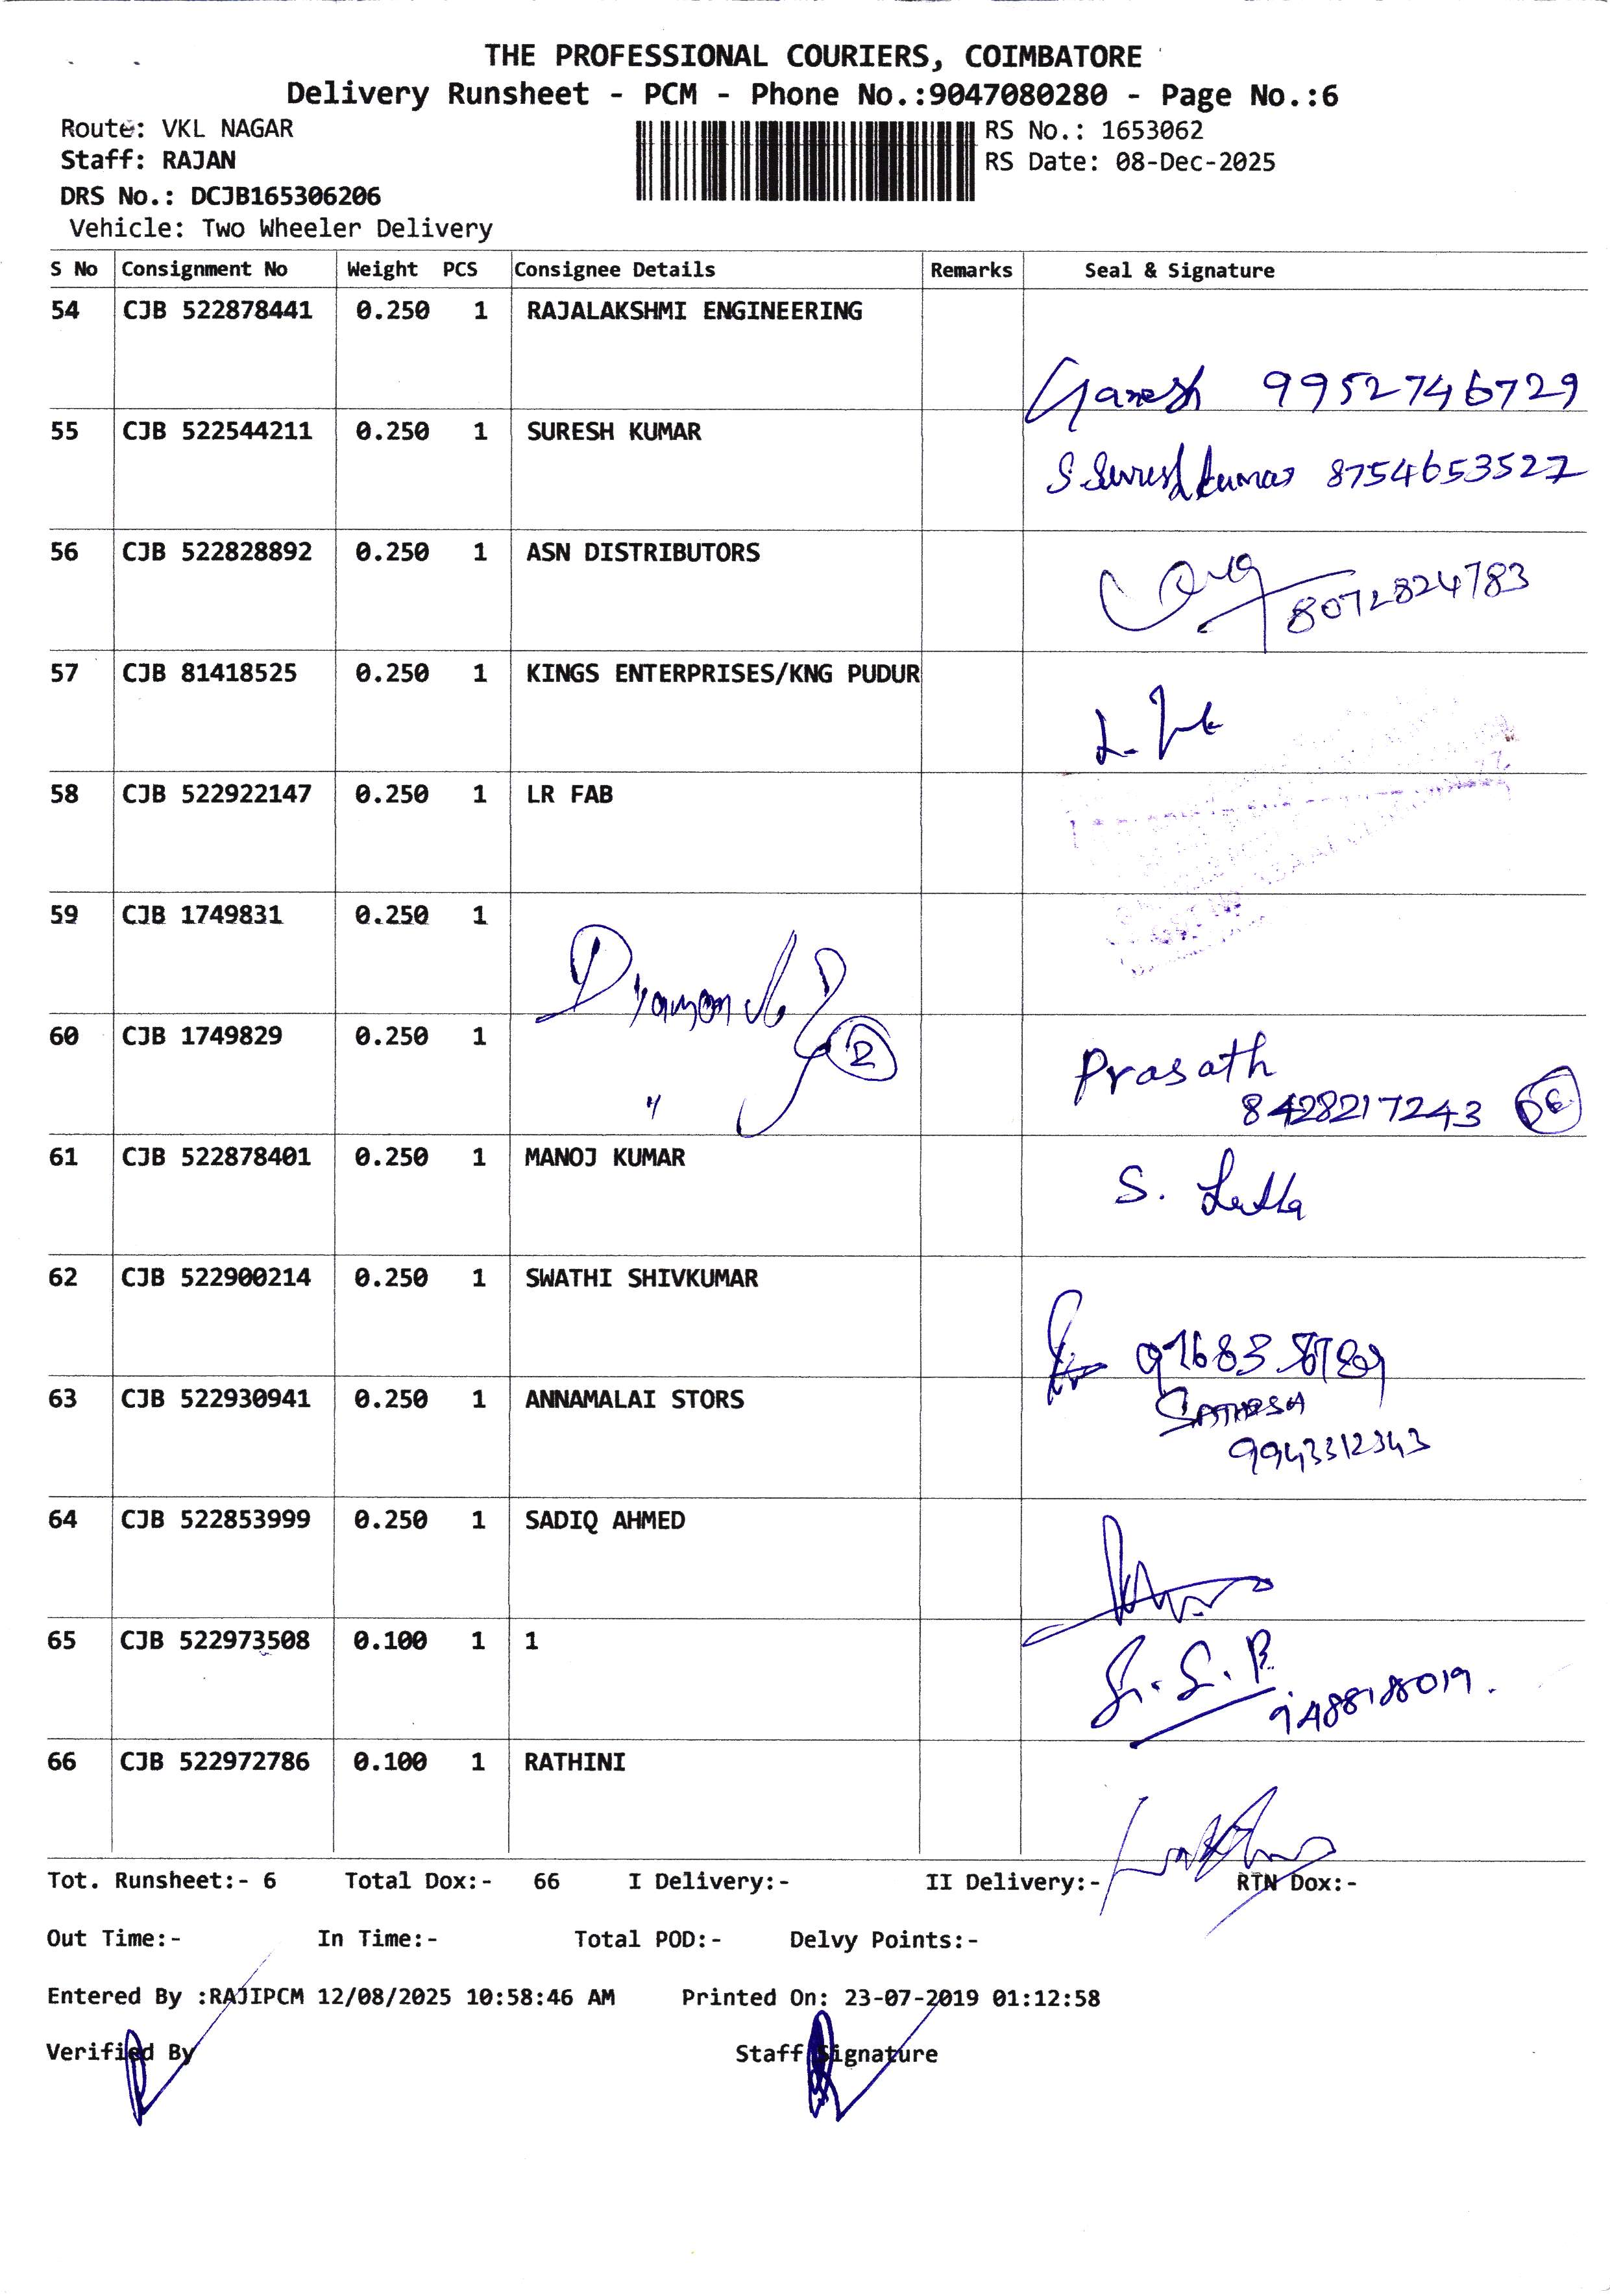 THE PROFESSIONAL COURIERS, COIMBATORE
Delivery Runsheet - PCM - Phone No.:9047080280 - Page No.:6
Route: VKL NAGAR
RS No.: 1653062
Staff: RAJAN
RS Date: 08-Dec-2025
DRS No.: DCJB165306206
Vehicle: Two Wheeler Delivery
S No Consignment No Weight PCS Consignee Details Remarks Seal & Signature
54 CJB 522878441 0.250 1 RAJALAKSHMI ENGINEERING
Ganesh 9952746729
55 CJB 522544211 0.250 1 SURESH KUMAR
S. Suresh kumar 8754653527
56 CJB 522828892 0.250 1 ASN DISTRIBUTORS
8072824783
57 CJB 81418525 0.250 1 KINGS ENTERPRISES/KNG PUDUR
58 CJB 522922147 0.250 1 LR FAB
59 CJB 1749831 0.250 1
60 CJB 1749829 0.250 1
2
"
Prasath
8428217243
61 CJB 522878401 0.250 1 MANOJ KUMAR
S.
62 CJB 522900214 0.250 1 SWATHI SHIVKUMAR
63 CJB 522930941 0.250 1 ANNAMALAI STORS
9943312343
64 CJB 522853999 0.250 1 SADIQ AHMED
65 CJB 522973508 0.100 1 1
9488188019.
66 CJB 522972786 0.100 1 RATHINI
Tot. Runsheet:- 6 Total Dox:- 66 I Delivery:- II Delivery:- RTN Dox:-
Out Time:- In Time:- Total POD:- Delvy Points:-
Entered By :RAJIPCM 12/08/2025 10:58:46 AM Printed On: 23-07-2019 01:12:58
Verified By Staff Signature